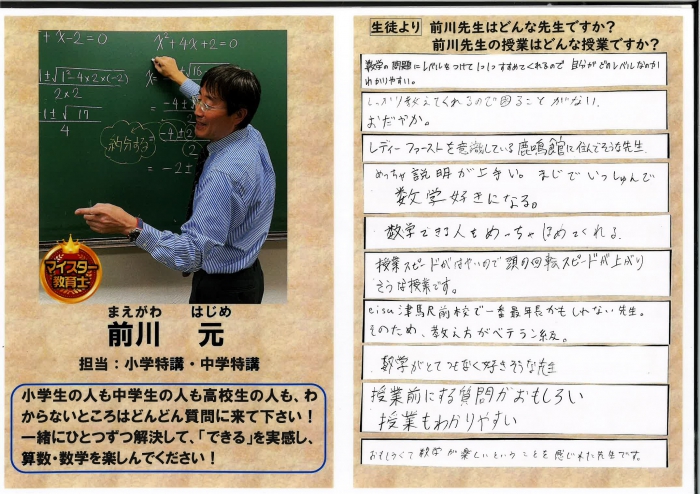 +x-2=0
x²+4x+2=0
1±√1²-4×2×(-2)
2×2
1±√17
4
x=
√16
= -4±
2
約分する
-4±2
2
= -2±
マイスター
教育士
まえがわ はじめ
前川 元
担当：小学特講・中学特講
小学生の人も中学生の人も高校生の人も、わ
からないところはどんどん質問に来て下さい！
一緒にひとつずつ解決して、「できる」を実感し、
算数・数学を楽しんでください！
生徒より 前川先生はどんな先生ですか？
前川先生の授業はどんな授業ですか？
数学の問題にレベルをつけて1つ1つすすめてくれるので自分がどのレベルなのか
わかりやすい。
しっかり教えてくれるので困ることがない。
おだやか。
レディーファーストを意識している鹿鳴館に住んでそうな先生
めっちゃ説明が上手い。まじでいっしゅんで
数学好きになる。
数学できる人をめっちゃほめてくれる。
授業スピードがはやいので頭の回転スピードが上がり
そうな授業です。
eisu津駅前校で一番最年長かもしれない先生。
そのため、教え方がベテラン級。
数学がとてつもなく好きそうな先生
授業前にする質問がおもしろい
授業もわかりやすい
おもしろくて数学が楽しいということを感じれた先生です。